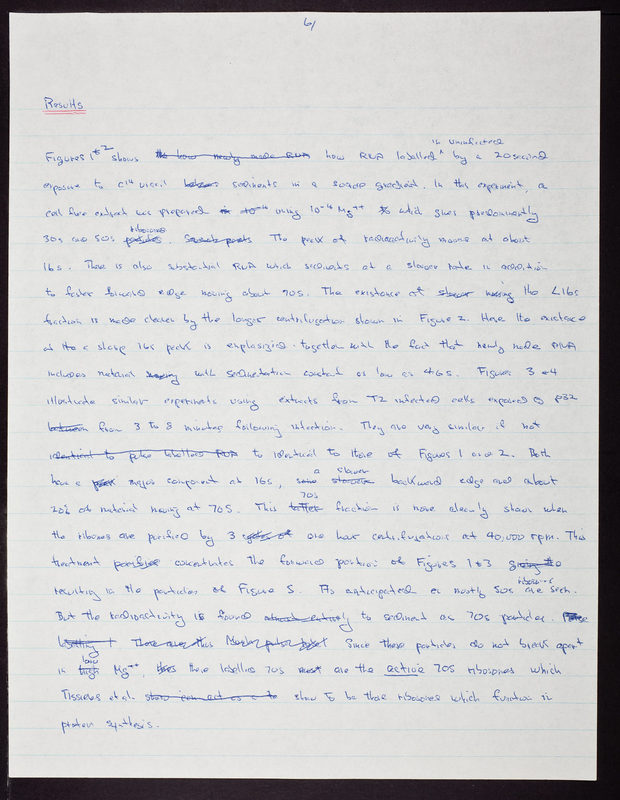 6/
Results
Figures 1+2 shows the how newly made RNA how RNA labelled in uninfected by a 20 second
exposure to C14 uracil sediments in a sucrose gradient. In this experiment, a
cell free extract was prepared in 10-4 using 10-4 Mg++ which gives predominantly
30s and 50s ribosomes. The peak of radioactivity moves at about
16s. There is also substantial RNA which sediments at a slower rate in addition
to faster forward edge moving about 70s. The existence of slower moving the <16s
fraction is made clearer by the longer centrifugation shown in Figure 2. Here the existence
of the a sharp 16s peak is emphasized together with the fact that newly made RNA
includes material moving with sedimentation constant as low as 4-6s. Figures 3 + 4
illustrate similar experiments using extracts from T2 infected cells exposed to P32
between from 3 to 8 minutes following infection. They are very similar if not
identical to pulse labelled RNA to identical to those of Figures 1 and 2. Both
have a peak major component at 16s, some a slower backward edge and about
20% of material moving at 70s. This latter 70s fraction is more clearly shown when
the riboses are purified by 3 cycles of one hour centrifugations at 40,000 rpm. This
treatment concentrates the forward portion of Figures 1+3 giving the
resulting in the particles of Figure 5. As anticipated mostly 50s ribosomes are seen.
But the radioactivity is found almost entirely to sediment as 70s particles.
labelling There are this Since these particles do not break apart
in high low Mg++, these labelled 70s most are the active 70s ribosomes which
Tissieres et al. show to be those ribosomes which function in
protein synthesis.